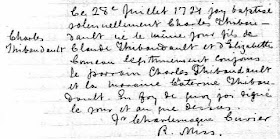 Le 28e Juillet 1721 jay baptisé
solennellement Charles Thibau-
Charles
dault né le même jour fils de
Thibaudault
Claude Thibaudault et d'Elizabette
Comeau légitimement conjoins
le parrain Charles Thibaudault
et la maraine Caterine Thibau
Dault. En foy de quoy j'ay signé
le jour et an que dessus.
fr Charlemagne Cuvier
R. Miss.